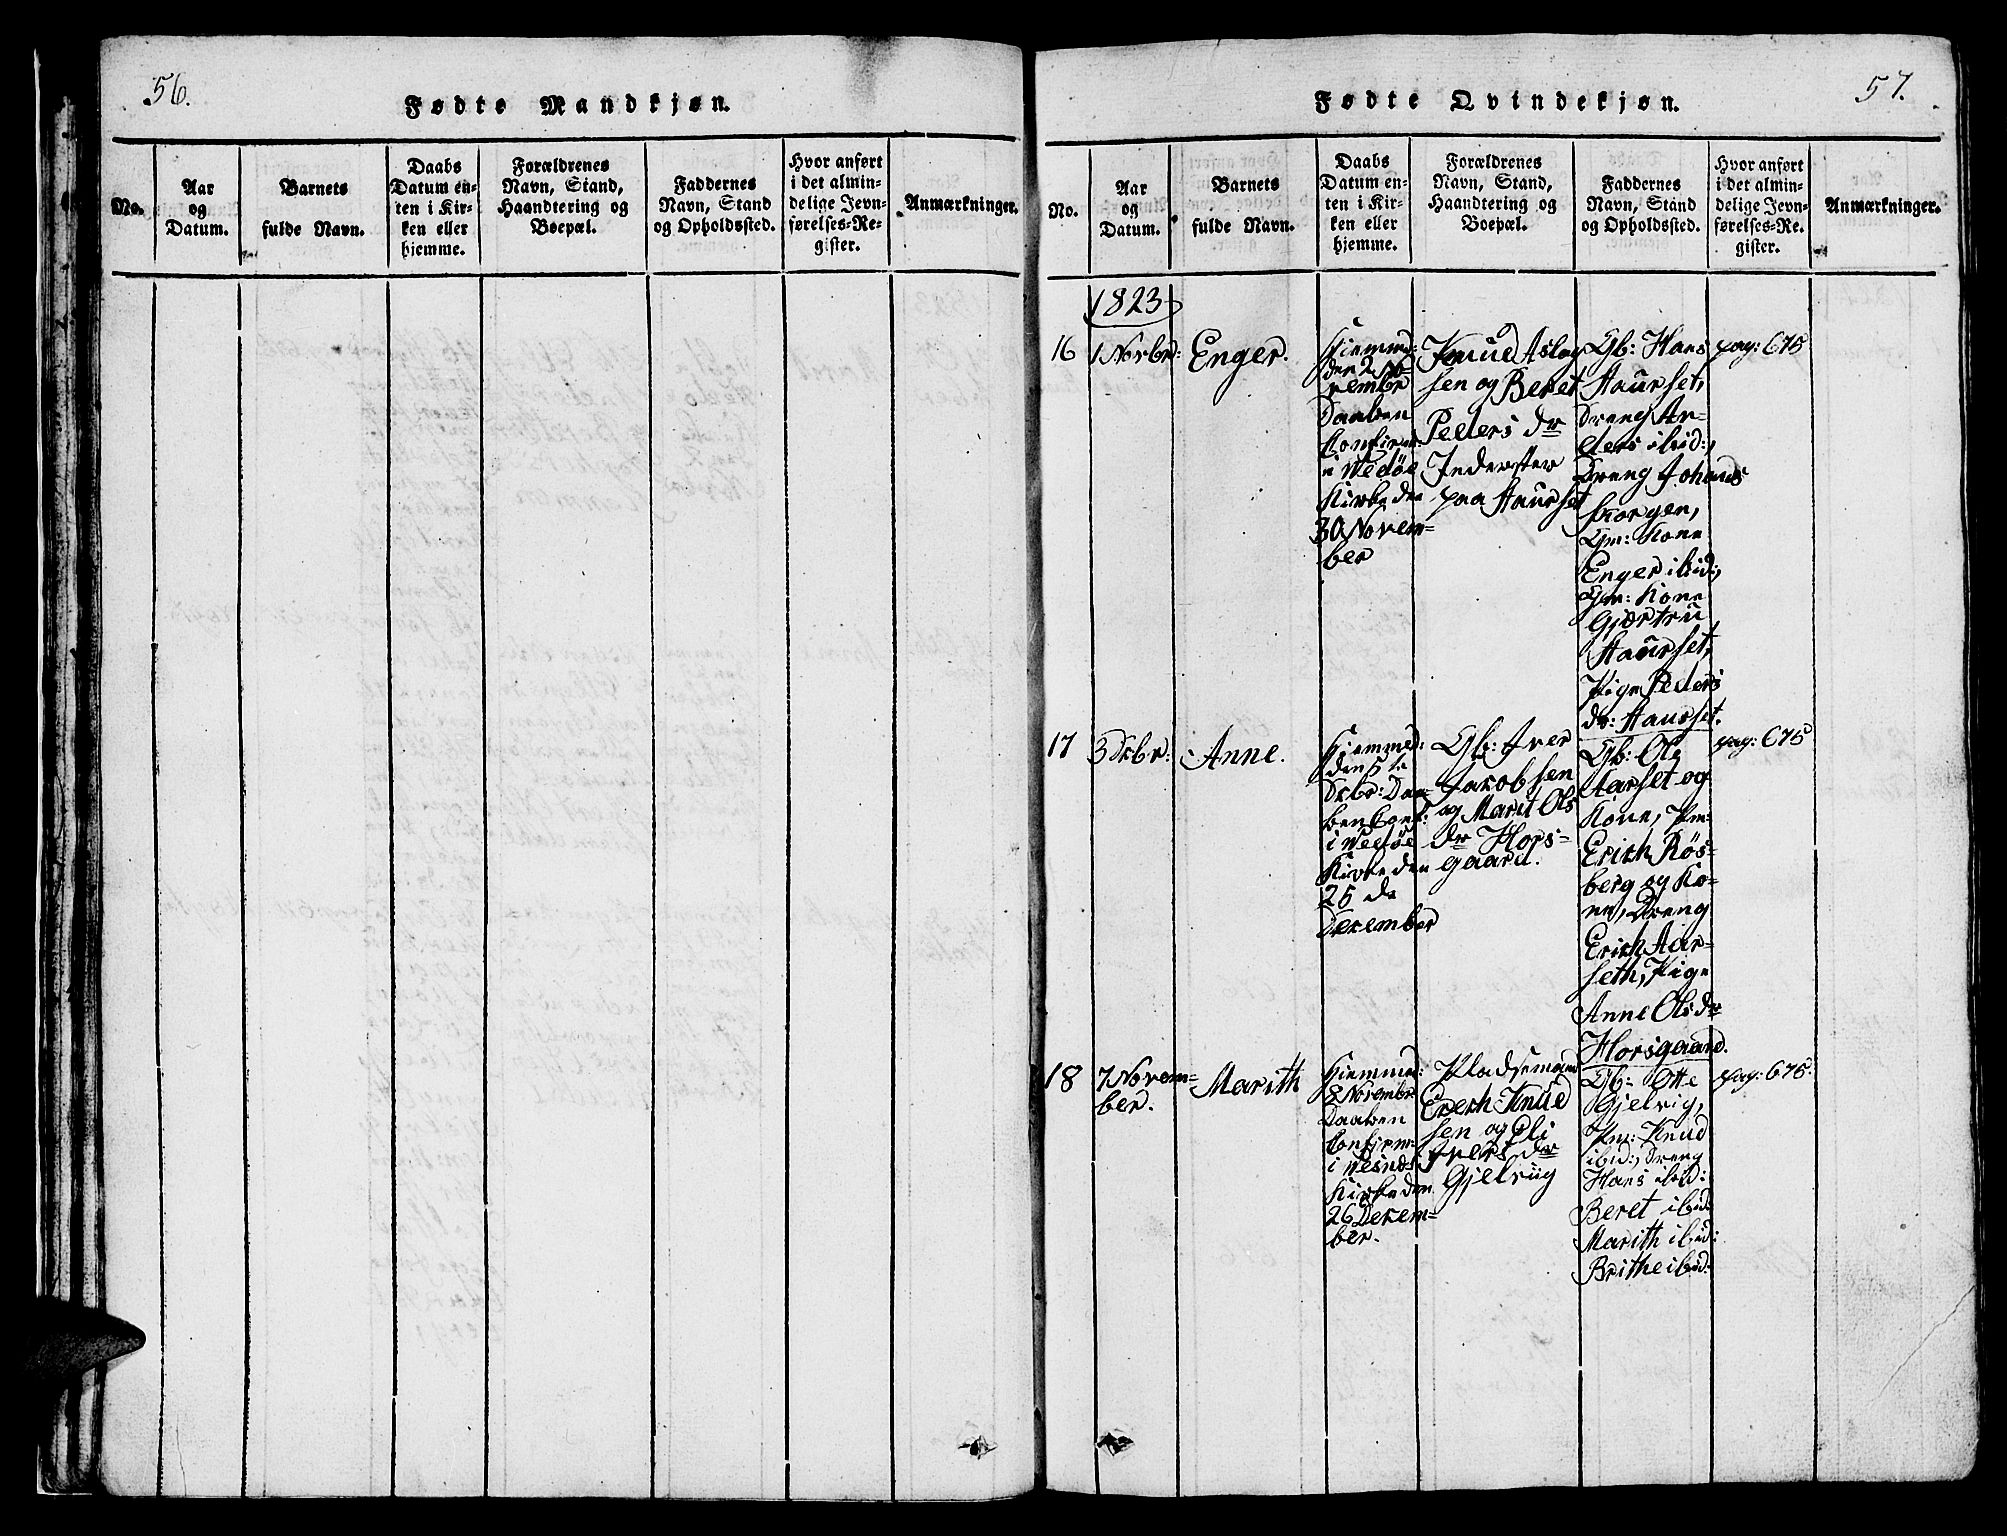 56.
Fødte Mandkjøn.
No.
Aar
og
Datum.
Barnets
fulde Navn.
Daabs
Datum en-
ten i Kir-
ken eller
hjemme.
Forældrenes
Navn, Stand,
Haandtering og
Boepæl.
Faddernes
Navn, Stand
og Opholdssted.
Hvor anført
i det almin-
delige Jevn-
førelses-Re-
gister.
Anmærkninger.
57.
Fødte Qvindekjøn.
No.
Aar
og
Datum.
Barnets
fulde Navn.
Daabs
Datum en-
ten i Kir-
ken eller
hjemme.
Forældrenes
Navn, Stand,
Haandtering og
Boepæl.
Faddernes
Navn, Stand
og Opholdssted.
Hvor anført
i det almin-
delige Jevn-
førelses-Re-
gister.
Anmærkninger.
1823
16
1 Novbr:
Enger.
Hjemmed:
den 2 No-
vembr
Daaben
Confirm:
i Wedøe
Kirke den
30 Novem-
ber
Knud Aslag
sen og Beret
Peders dr
Inderster
paa Haurset
Gb: Hans
Haurset,
Dreng An-
ders ibid:,
Dreng Johans
Skorgen,
Gm: Kone
Enger ibid:,
Gm: Kone
Gjertru
Haurset,
Pige Peders
dr: Haurset.
pag: 675
17
3 Dcbr:
Anne.
Hjemmed:
den 5te
Dcbr: Daa-
ben Conf:
i Wedøe
Kirke den
25 de
December
Gb: Iver
Jacobsen
og Marit Ols
dr Hors-
gaard.
Gb: Ole
Aarset og
Kone, Pm:
Erich Røs-
berg og Ko-
ne, Dreng
Erich Aar-
seth, Pige
Anne Olsdr
Horsgaard.
pag: 675
18
7 Novem-
ber.
Marith
Hjemmed:
8 Novembr
Daaben
Confirm:
i Vesnæs
Kirke den
26 Decem-
ber.
Pladsemand
Erech Knud
sen og Eli
Ivers dr
Gjelviig
Gb: Otte
Gjelvig,
Pm: Knud
ibid:, Dreng
Hans ibid:
Beret ibid
Marith ibid:
Brithe ibid:
pag: 675.